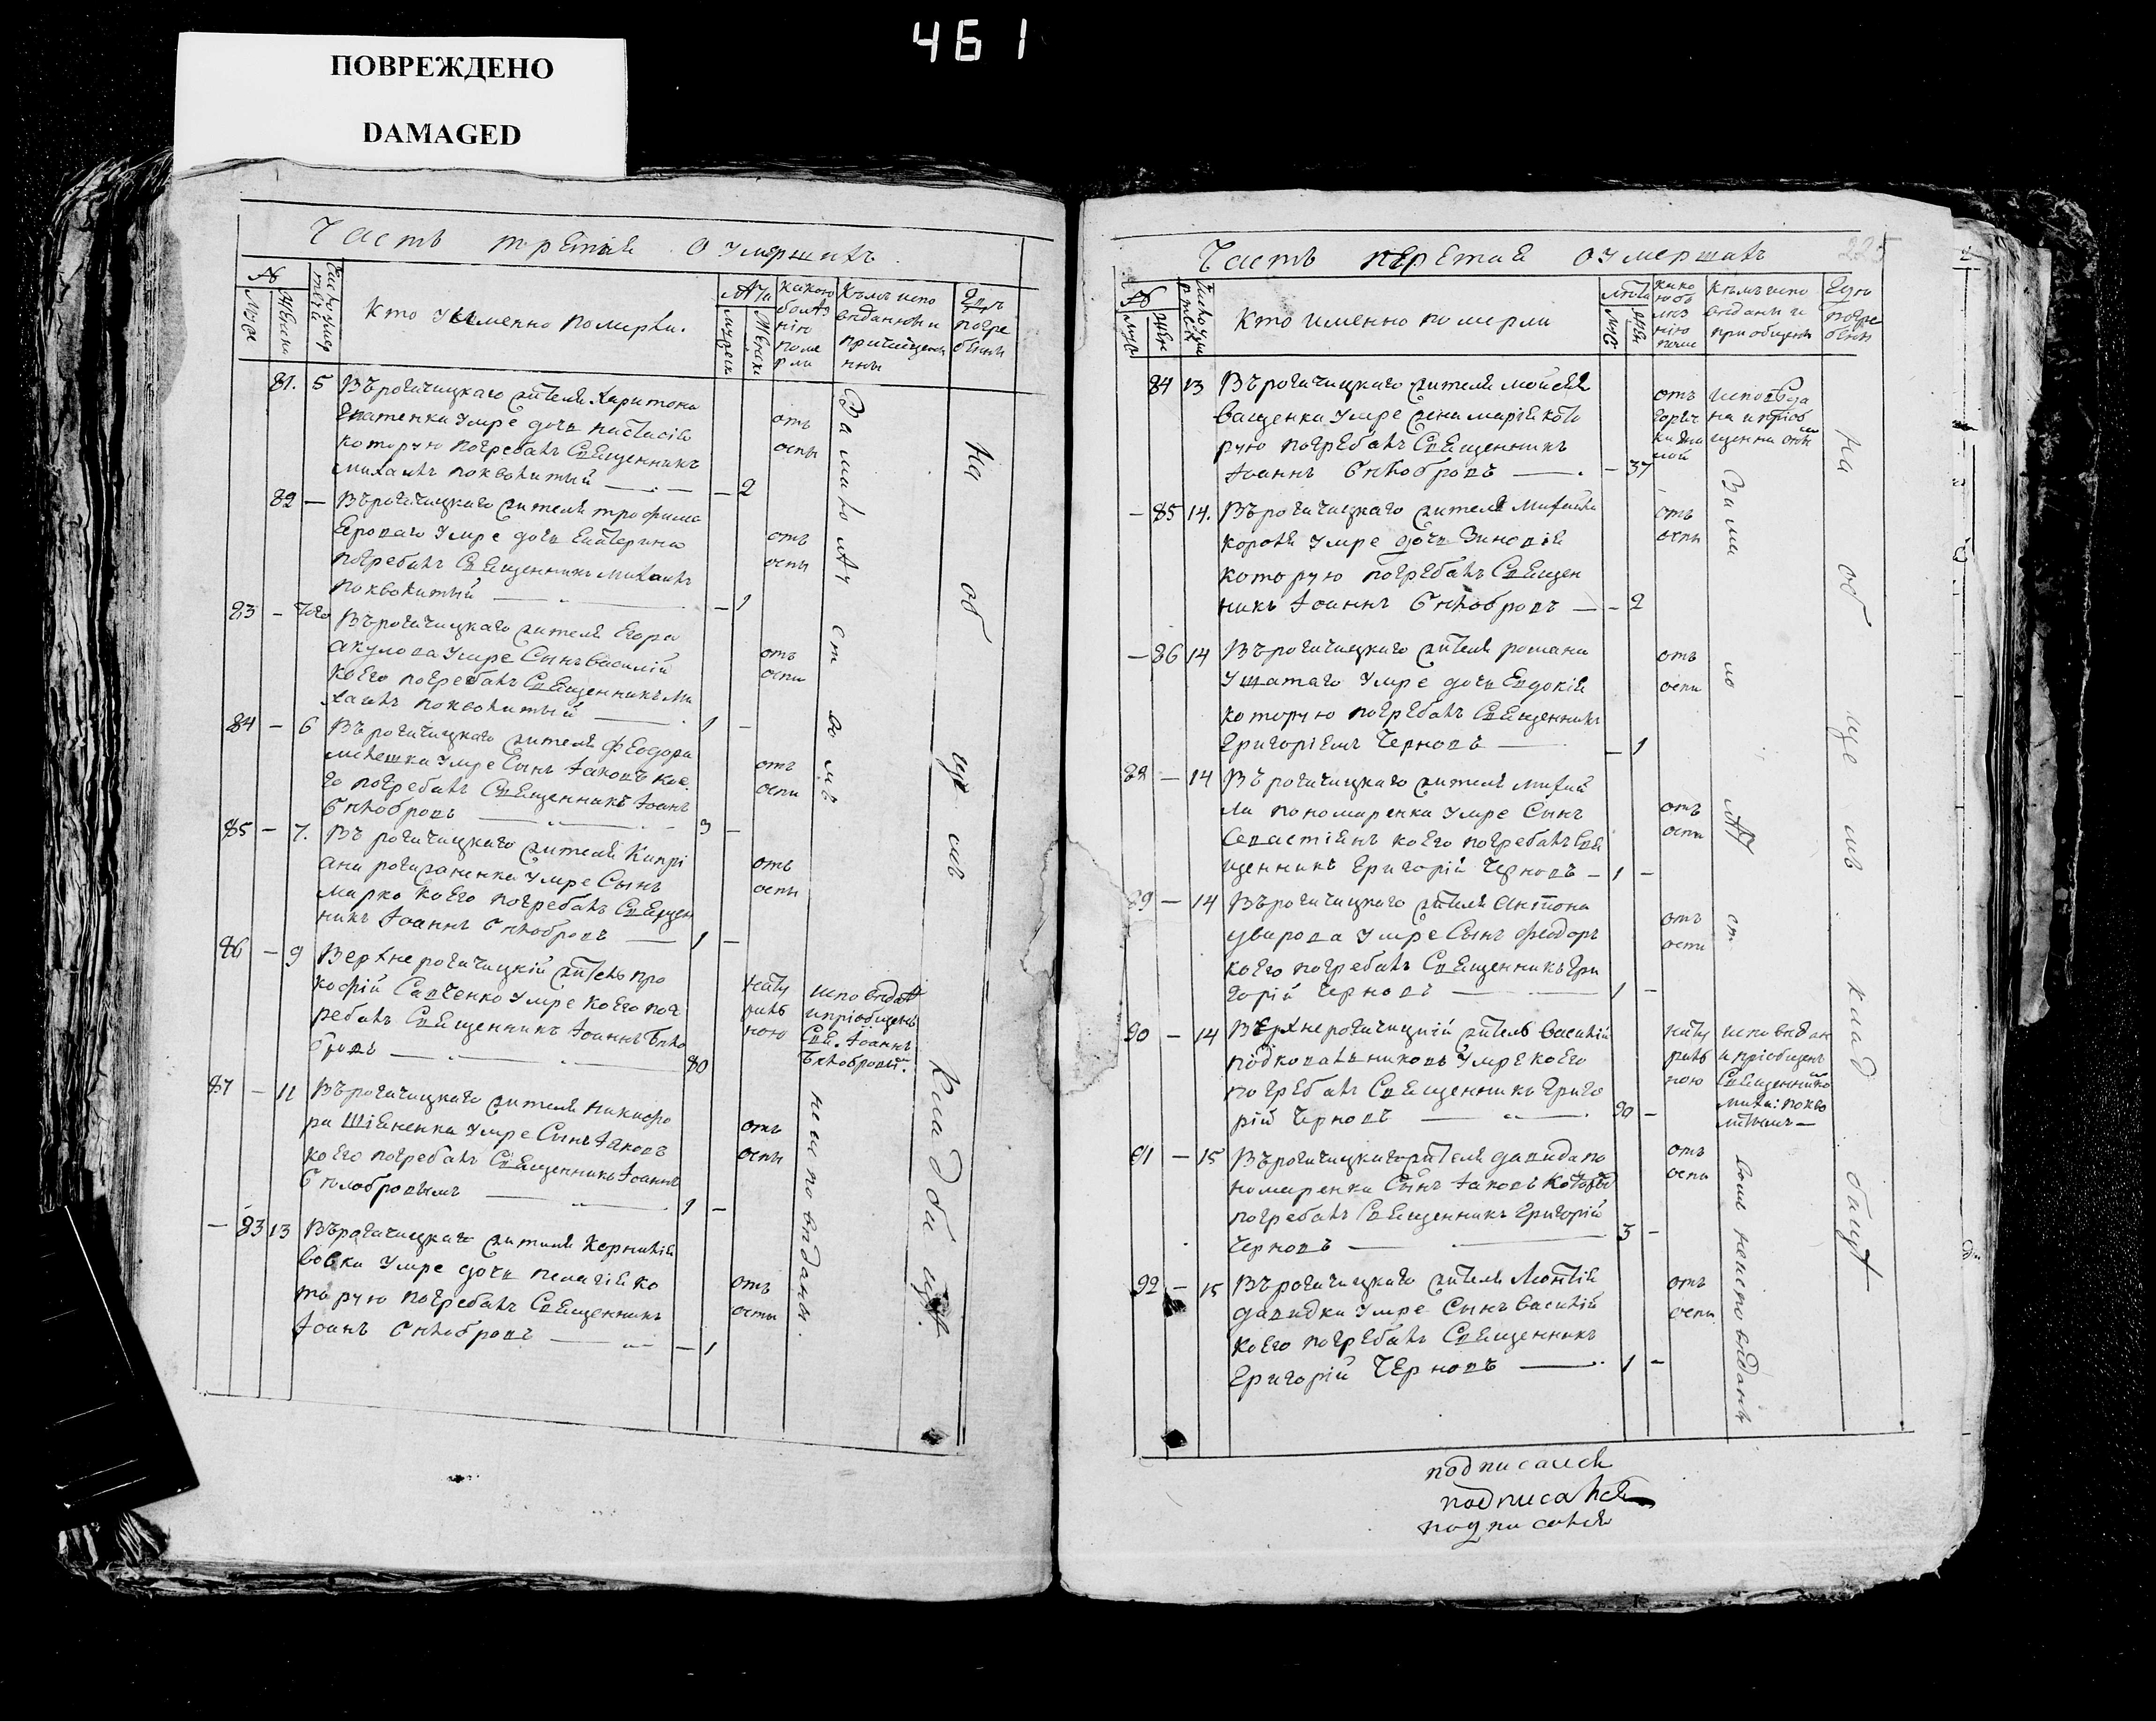 461
ПОВРЕЖДЕНО
DAMAGED
Часть третія о умершихъ.
№
Муск
Женск
Кто именно померли.
Лѣта
мужеск
Женск
какою
болѣз
нію
поме
рли
Кѣмъ испо
вѣданы и
причище
нны
Гдѣ
погре
бены
81. 5 Върогачицкаго жителя Харитона
Игнатенка умре дочь Настасія
которую погребалъ Священникъ
Михаилъ Поквалитый — 2
отъ
оспы
82 — Върогачицкаго жителя Трофима
умре дочь Екатерина
погребалъ Священникъ Михаилъ
Поквалитый — 1
отъ
оспы
83 — того Върогачицкаго жителя Егора
Акулова умре Сынъ Василій
коего погребалъ Священникъ Ми
хаилъ Поквалитый — 1 —
отъ
оспы
84 — 6 Върогачицкаго жителя Феодора
умре Сынъ Іаковъ кое
го погребалъ Священникъ Іоанъ
Бѣлобровъ — 3 —
отъ
оспы
85 — 7. Въ рогачицкаго жителя Кипрі
ана умре Сынъ
Марко коего погребалъ Священ
никъ Іоаннъ Бѣлобровъ — 1 —
отъ
оспы
86 — 9 Верхнерогачицкій житель Про
кофій Савченко умре коего пог
ребалъ Священникъ Іоаннъ Бѣло
бровъ — 80
нату
раль
ною
исповѣданъ
и пріобщенъ
Свя. Іоаннъ
Бѣлобровы.
87 — 11 Върогачицкаго жителя Никифо
ра умре Сынъ Іаковъ
коего погребалъ Священникъ Іоаннъ
Бѣлобровымъ — 1 —
отъ
оспы
— 83 13 Върогачицкаго жителя Корнилія
Вовка умре дочь Пелагія ко
торую погребалъ Священникъ
Іоанъ Бѣлобровъ — 1
отъ
оспы
За мало лѣт ст во мъ
не исповѣданы.
На об щемъ
кладбищѣ
225
Часть третія о умершихъ
№
муж
жен
Кто именно померли
лѣта
муж
жен
како
ю бо
лѣз
нію
поме
Кѣмъ испо
вѣданы и
пріобщены
Гдѣ
погре
бены
84 13 Върогачицкаго жителя Моисея
Ващенка умре жена Марія кото
рую погребалъ Священникъ
Іоаннъ Бѣлобровъ — 37
отъ
горяч
ки
исповѣда
на и пріоб
щенна
— 85 14. Върогачицкаго жителя Михаила
Короля умре дочь Зиновія
которую погребалъ Священ
никъ Іоаннъ Бѣлобровъ — 2
отъ
оспы
— 86 14 Върогачицкаго жителя Романа
Ушатаго умре дочь Евдокія
которую погребалъ Священникъ
Григоріемъ Черновъ — 1
отъ
оспы
88 — 14 Върогачицкаго жителя Михай
ла Пономаренка умре Сынъ
Севастіянъ коего погребалъ Свя
щенникъ Григорій Черновъ — 1 —
отъ
оспы
89 — 14 Върогачицкаго жителя Антона
Уварова умре Сынъ Феодоръ
коего погребалъ Священникъ Гри
горій Черновъ — 1 —
отъ
оспы
90 — 14 Верхнерогачицкій житель Василій
Подковальниковъ умре коего
погребалъ Священникъ Григо
рій Черновъ — 90 —
нату
раль
ною
исповѣдан
и пріобщенъ
Священнико
Миха: Покво
литымъ —
91 — 15 Върогачицкаго жителя Давида По
номаренка Сынъ Іаковъ
погребалъ Священникъ Григорій
Черновъ — 3 —
отъ
оспы
92 — 15 Върогачицкаго жителя Леонтія
Давидка умре Сынъ Василій
коего погребалъ Священникъ
Григорій Черновъ — 1 —
отъ
оспы
За ма ло лѣт ст
вомъ неисповѣданъ
На об ще мъ клад бищѣ
подписался
подписался
подписался